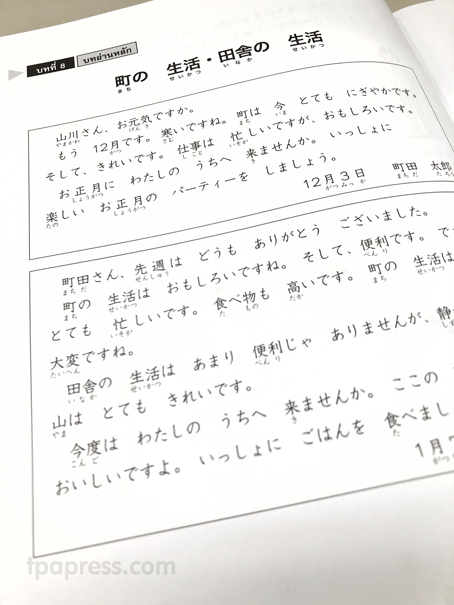 บทที่ 8 บทอ่านหลัก
町の 生活・田舎の 生活
まち せいかつ いなか せいかつ
山川さん、お元気ですか。
やまかわ げんき
もう 12月です。寒いですね。町は 今 とても にぎやかです。
がつ さむ まち いま
そして、きれいです。仕事は 忙しいですが、おもしろいです。
しごと いそが
お正月に わたしの うちへ 来ませんか。いっしょに
しょうがつ き
楽しい お正月の パーティーを しましょう。
たの しょうがつ
12月3日 町田 太郎
がつみっか まちだ たろう
町田さん、先週は どうも ありがとう ございました。
まちだ せんしゅう
町の 生活は おもしろいですね。そして、便利です。で
まち せいかつ べんり
とても 忙しいです。食べ物も 高いです。町の 生活は
いそが た もの たか まち せいかつ
大変ですね。
たいへん
田舎の 生活は あまり 便利じゃ ありませんが、静
いなか せいかつ べんり しず
山は とても きれいです。
やま
今度は わたしの うちへ 来ませんか。ここの
こんど き
おいしいですよ。いっしょに ごはんを 食べまし
た
1月
がつ
tpapress.com